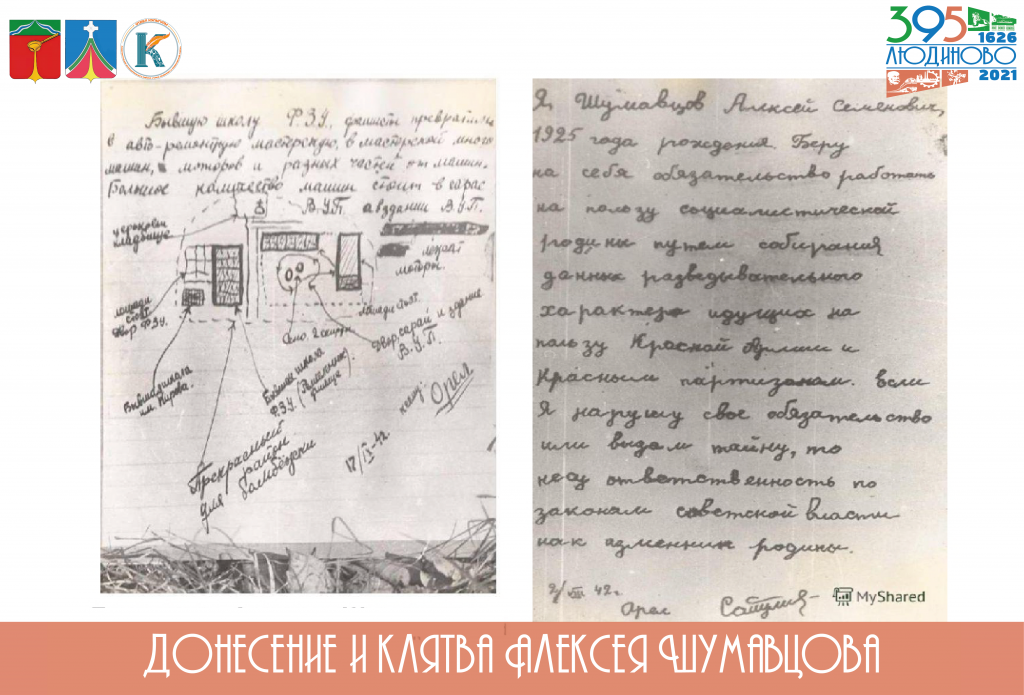 395
1626
ЛЮДИНОВО
2021
К
Бывшую школу Ф.З.У. фашисты превратили
в авто-ремонтную мастерскую, в мастерской много
машин, моторов и разных частей от машин.
Большое количество машин стоит в сарае
В.У.П. а в здании В.У.П.
лежат
моторы.
кладбище
лошади
стоят
Двор Ф.З.У.
Лошади стоят
Двор сарай и здание
В.У.П.
им. Кирова.
Бывшая школа
Ф.З.У.
Прекрасный
район
для бомбёжки
Орел
12/IX-42.
Я, Шумавцов Алексей Семенович,
1925 года рождения. Беру
на себя обязательство работать
на пользу социалистической
родины путем собирания
данных разведывательного
характера идущих на
пользу Красной Армии и
Красным партизанам. Если
Я нарушу свое обязательство
или выдам тайну, то
несу ответственность по
законам советской власти
как изменник родины.
2/VIII 42 г.
Орел
MyShared
ДОНЕСЕНИЕ И КЛЯТВА АЛЕКСЕЯ ШУМАВЦОВА